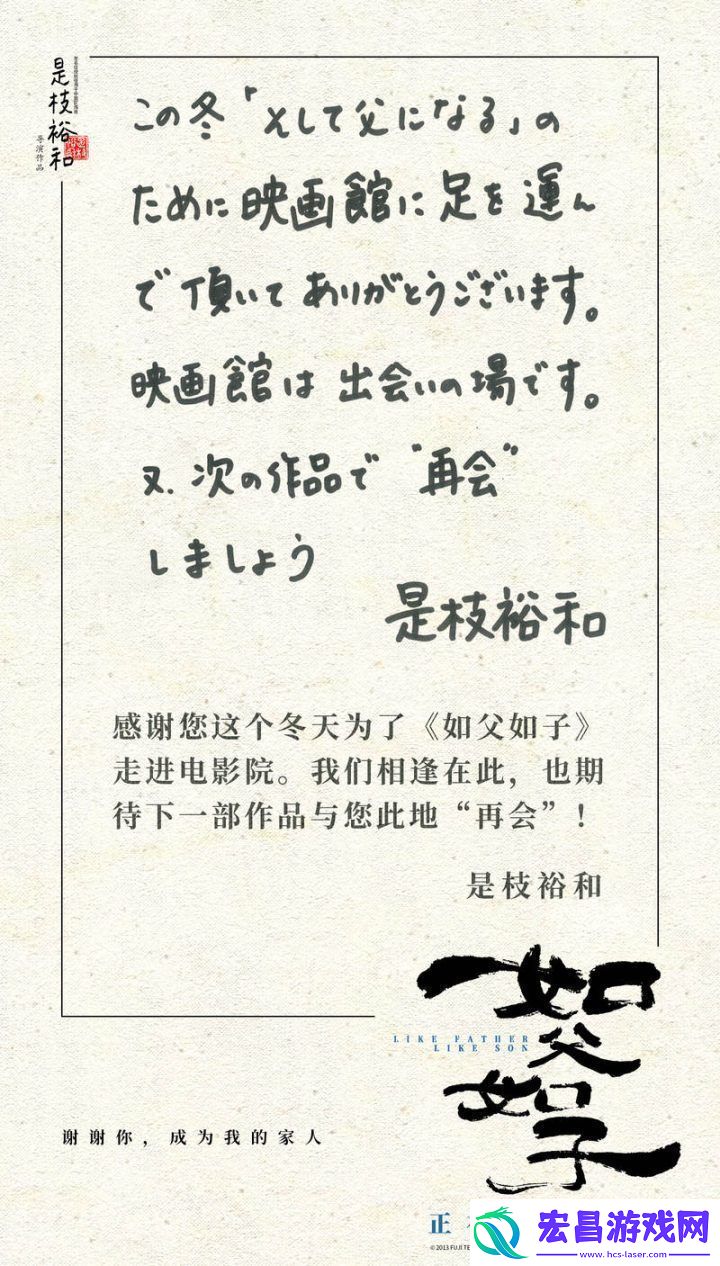 是枝裕和
导演作品
この冬「そして父になる」の
ために映画館に足を運ん
で頂いてありがとうございます。
映画館は出会いの場です。
又、次の作品で“再会”
しましょう
是枝裕和
感谢您这个冬天为了《如父如子》
走进电影院。我们相逢在此，也期
待下一部作品与您此地“再会”！
是枝裕和
如父如子
LIKE FATHER
LIKE SON
谢谢你，成为我的家人
正
©2013 FUJI TE
宏昌游戏网
www.hcs-laser.com